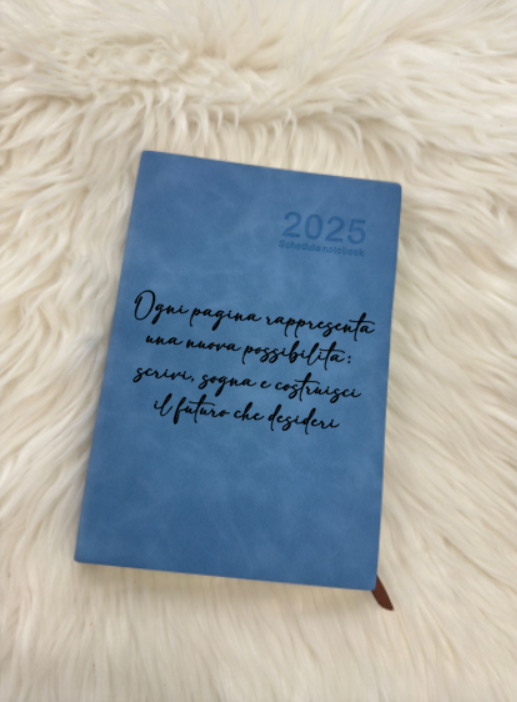 2025
Schedule notebook
Ogni pagina rappresenta
una nuova possibilità:
scrivi, sogna e costruisci
il futuro che desideri